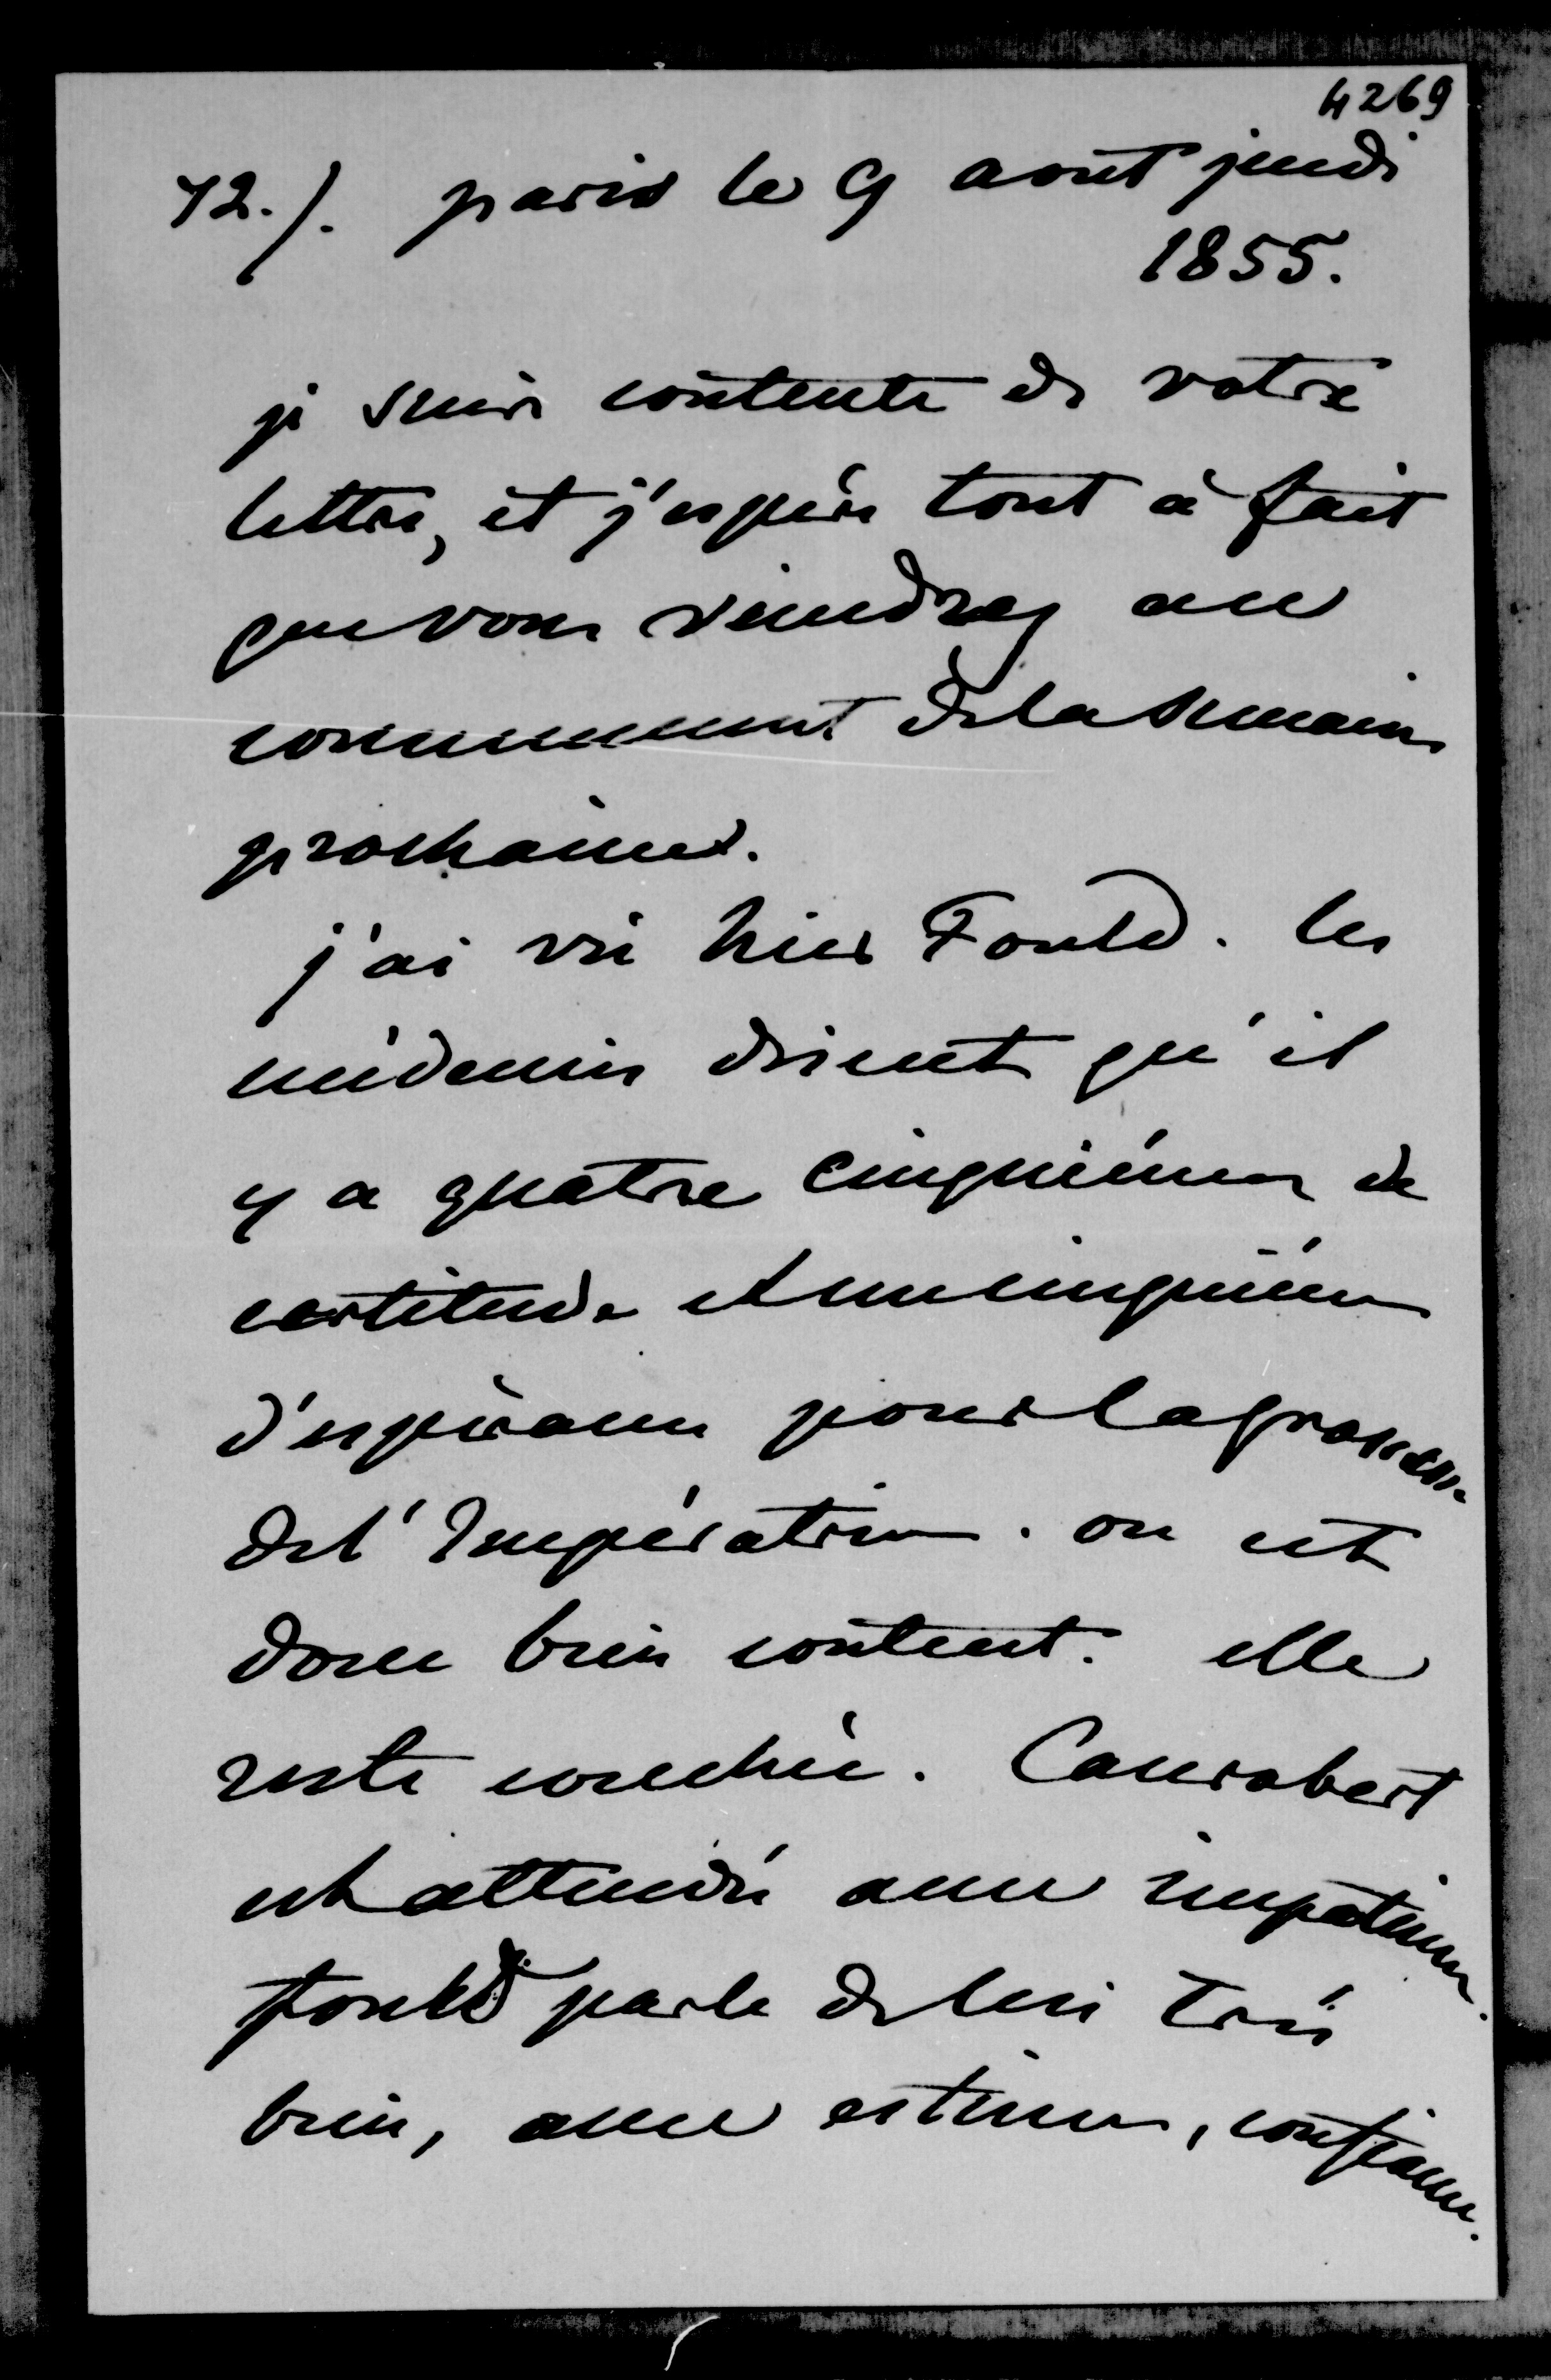 4269
72.). paris le 9 aout jeudi
1855.
je suis contente de votre
lettre, et j'espère tout à fait
que vous viendrez au
commencement de la semaine
prochaine.
j'ai vu hier Fould. les
médecins disent qu'il
y a quatre cinquièmes de
certitude et un cinquième
d'espérance pour la grossesse
de l'Impératrice. on est
donc bien content. elle
reste couchée. Canrobert
est attendu avec impatience.
fould parle de lui très
bien, avec estime, confiance.